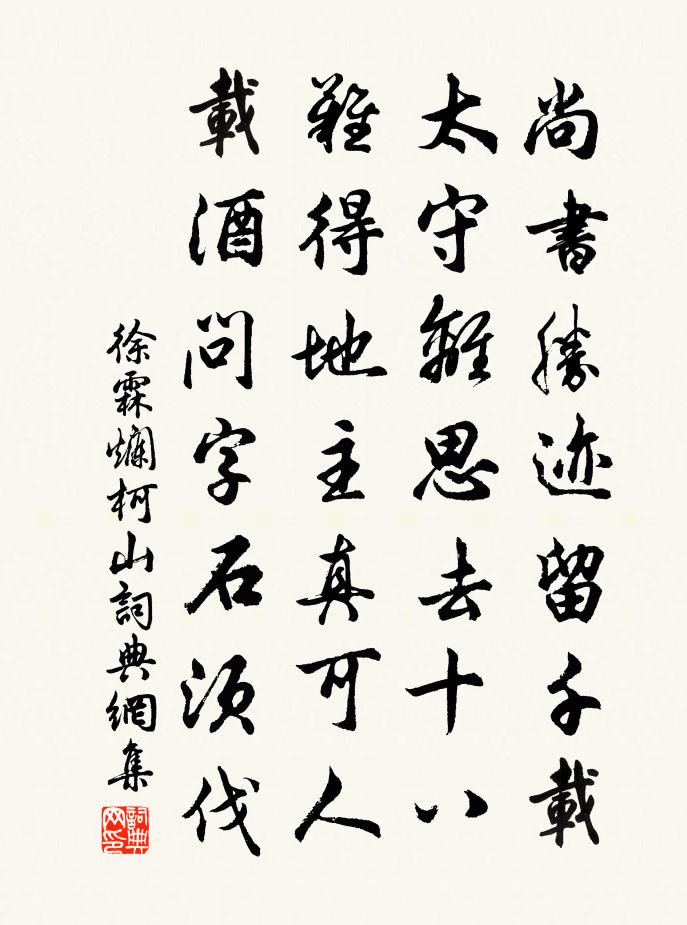 尚書勝迹留千載
太守離思去十八
難得地主真可人
載酒問字石須伐
徐霖爛柯山詞典網集
詞典网印